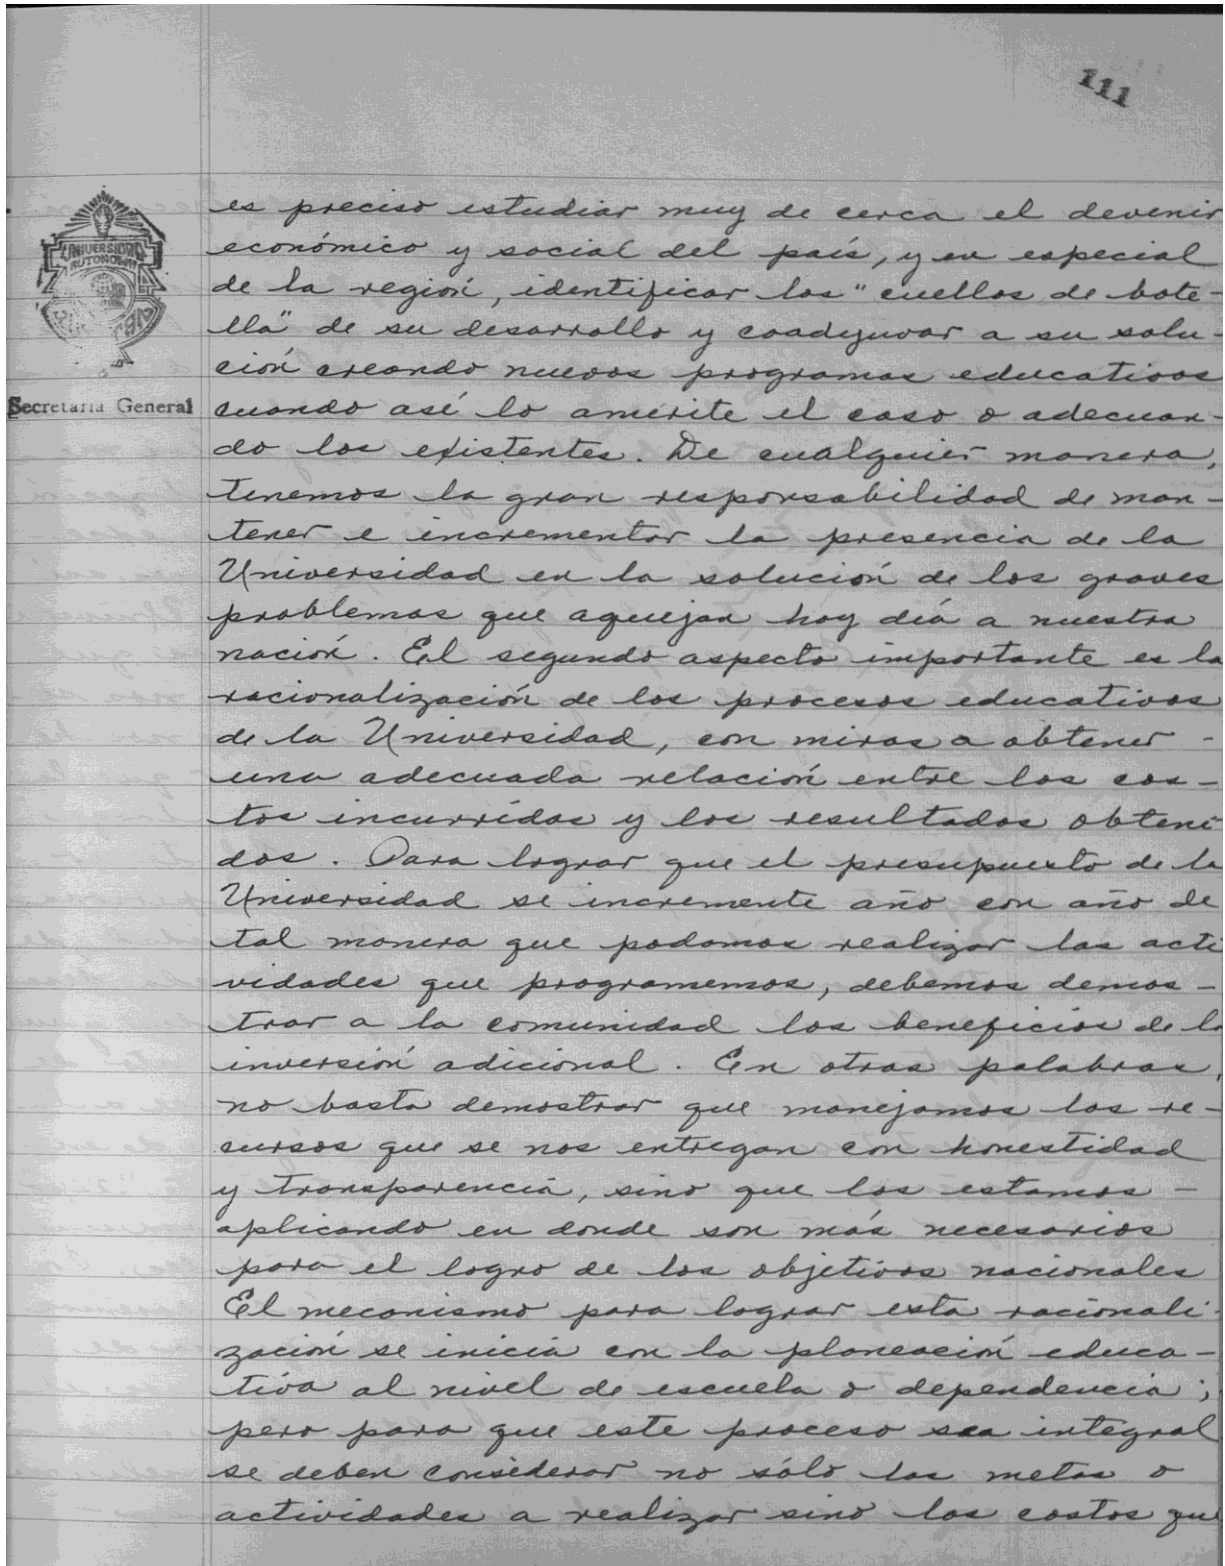 111
UNIVERSIDAD
AUTONOMA
Secretaría General
es preciso estudiar muy de cerca el devenir
económico y social del país, y en especial
de la región, identificar los "cuellos de bote-
lla" de su desarrollo y coadyuvar a su solu-
ción creando nuevos programas educativos
cuando así lo amerite el caso o adecuan-
do los existentes. De cualquier manera,
tenemos la gran responsabilidad de man-
tener e incrementar la presencia de la
Universidad en la solución de los graves
problemas que aquejan hoy día a nuestra
nación. El segundo aspecto importante es la
racionalización de los procesos educativos
de la Universidad, con miras a obtener -
una adecuada relación entre los cos-
tos incurridos y los resultados obteni
dos. Para lograr que el presupuesto de la
Universidad se incremente año con año de
tal manera que podamos realizar las acti
vidades que programemos, debemos demos-
trar a la comunidad los beneficios de la
inversión adicional. En otras palabras,
no basta demostrar que manejamos los re-
cursos que se nos entregan con honestidad
y transparencia, sino que los estamos -
aplicando en donde son más necesarios
para el logro de los objetivos nacionales
El mecanismo para lograr esta racionali-
zación se inicia con la planeación educa-
tiva al nivel de escuela o dependencia;
pero para que este proceso sea integral
se deben considerar no sólo las metas o
actividades a realizar sino los costos que